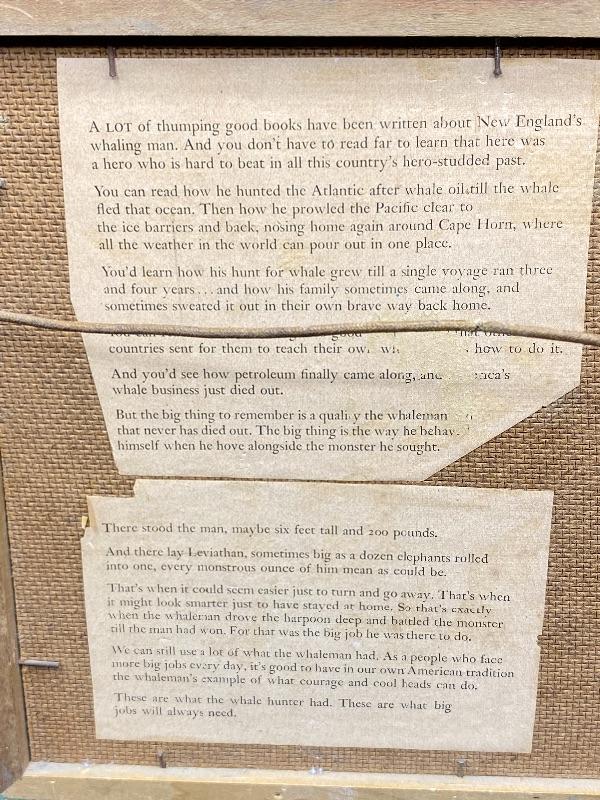 A LOT of thumping good books have been written about New England's
whaling man. And you don't have to read far to learn that here was
a hero who is hard to beat in all this country's hero-studded past.
You can read how he hunted the Atlantic after whale oil till the whale
fled that ocean. Then how he prowled the Pacific clear to
the ice barriers and back, nosing home again around Cape Horn, where
all the weather in the world can pour out in one place.
You'd learn how his hunt for whale grew till a single voyage ran three
and four years...and how his family sometimes came along, and
sometimes sweated it out in their own brave way back home.
good
countries sent for them to teach their how to do it.
And you'd see how petroleum finally came along,
whale business just died out.
But the big thing to remember is a quality the whaleman
that never has died out. The big thing is the way he
himself when he hove alongside the monster he sought.
There stood the man, maybe six feet tall and 200 pounds.
And there lay Leviathan, sometimes big as a dozen elephants rolled
into one, every monstrous ounce of him mean as could be.
That's when it could seem easier just to turn and go away. That's when
it might look smarter just to have stayed at home. So that's exactly
when the whaleman drove the harpoon deep and battled the monster
till the man had won. For that was the big job he was there to do.
We can still use a lot of what the whaleman had. As a people who face
more big jobs every day, it's good to have in our own American tradition
the whaleman's example of what courage and cool heads can do.
These are what the whale hunter had. These are what big
jobs will always need.